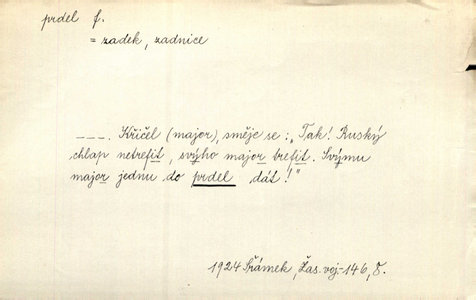 prdel f.
= zadek, zadnice
___. Křičel (major), směje se: „Tak! Ruský
chlap netrefit, svýho major trefit. Svýmu
major jednu do prdel dát!"
1924 Šrámek, Žas. voj. 146, 8.